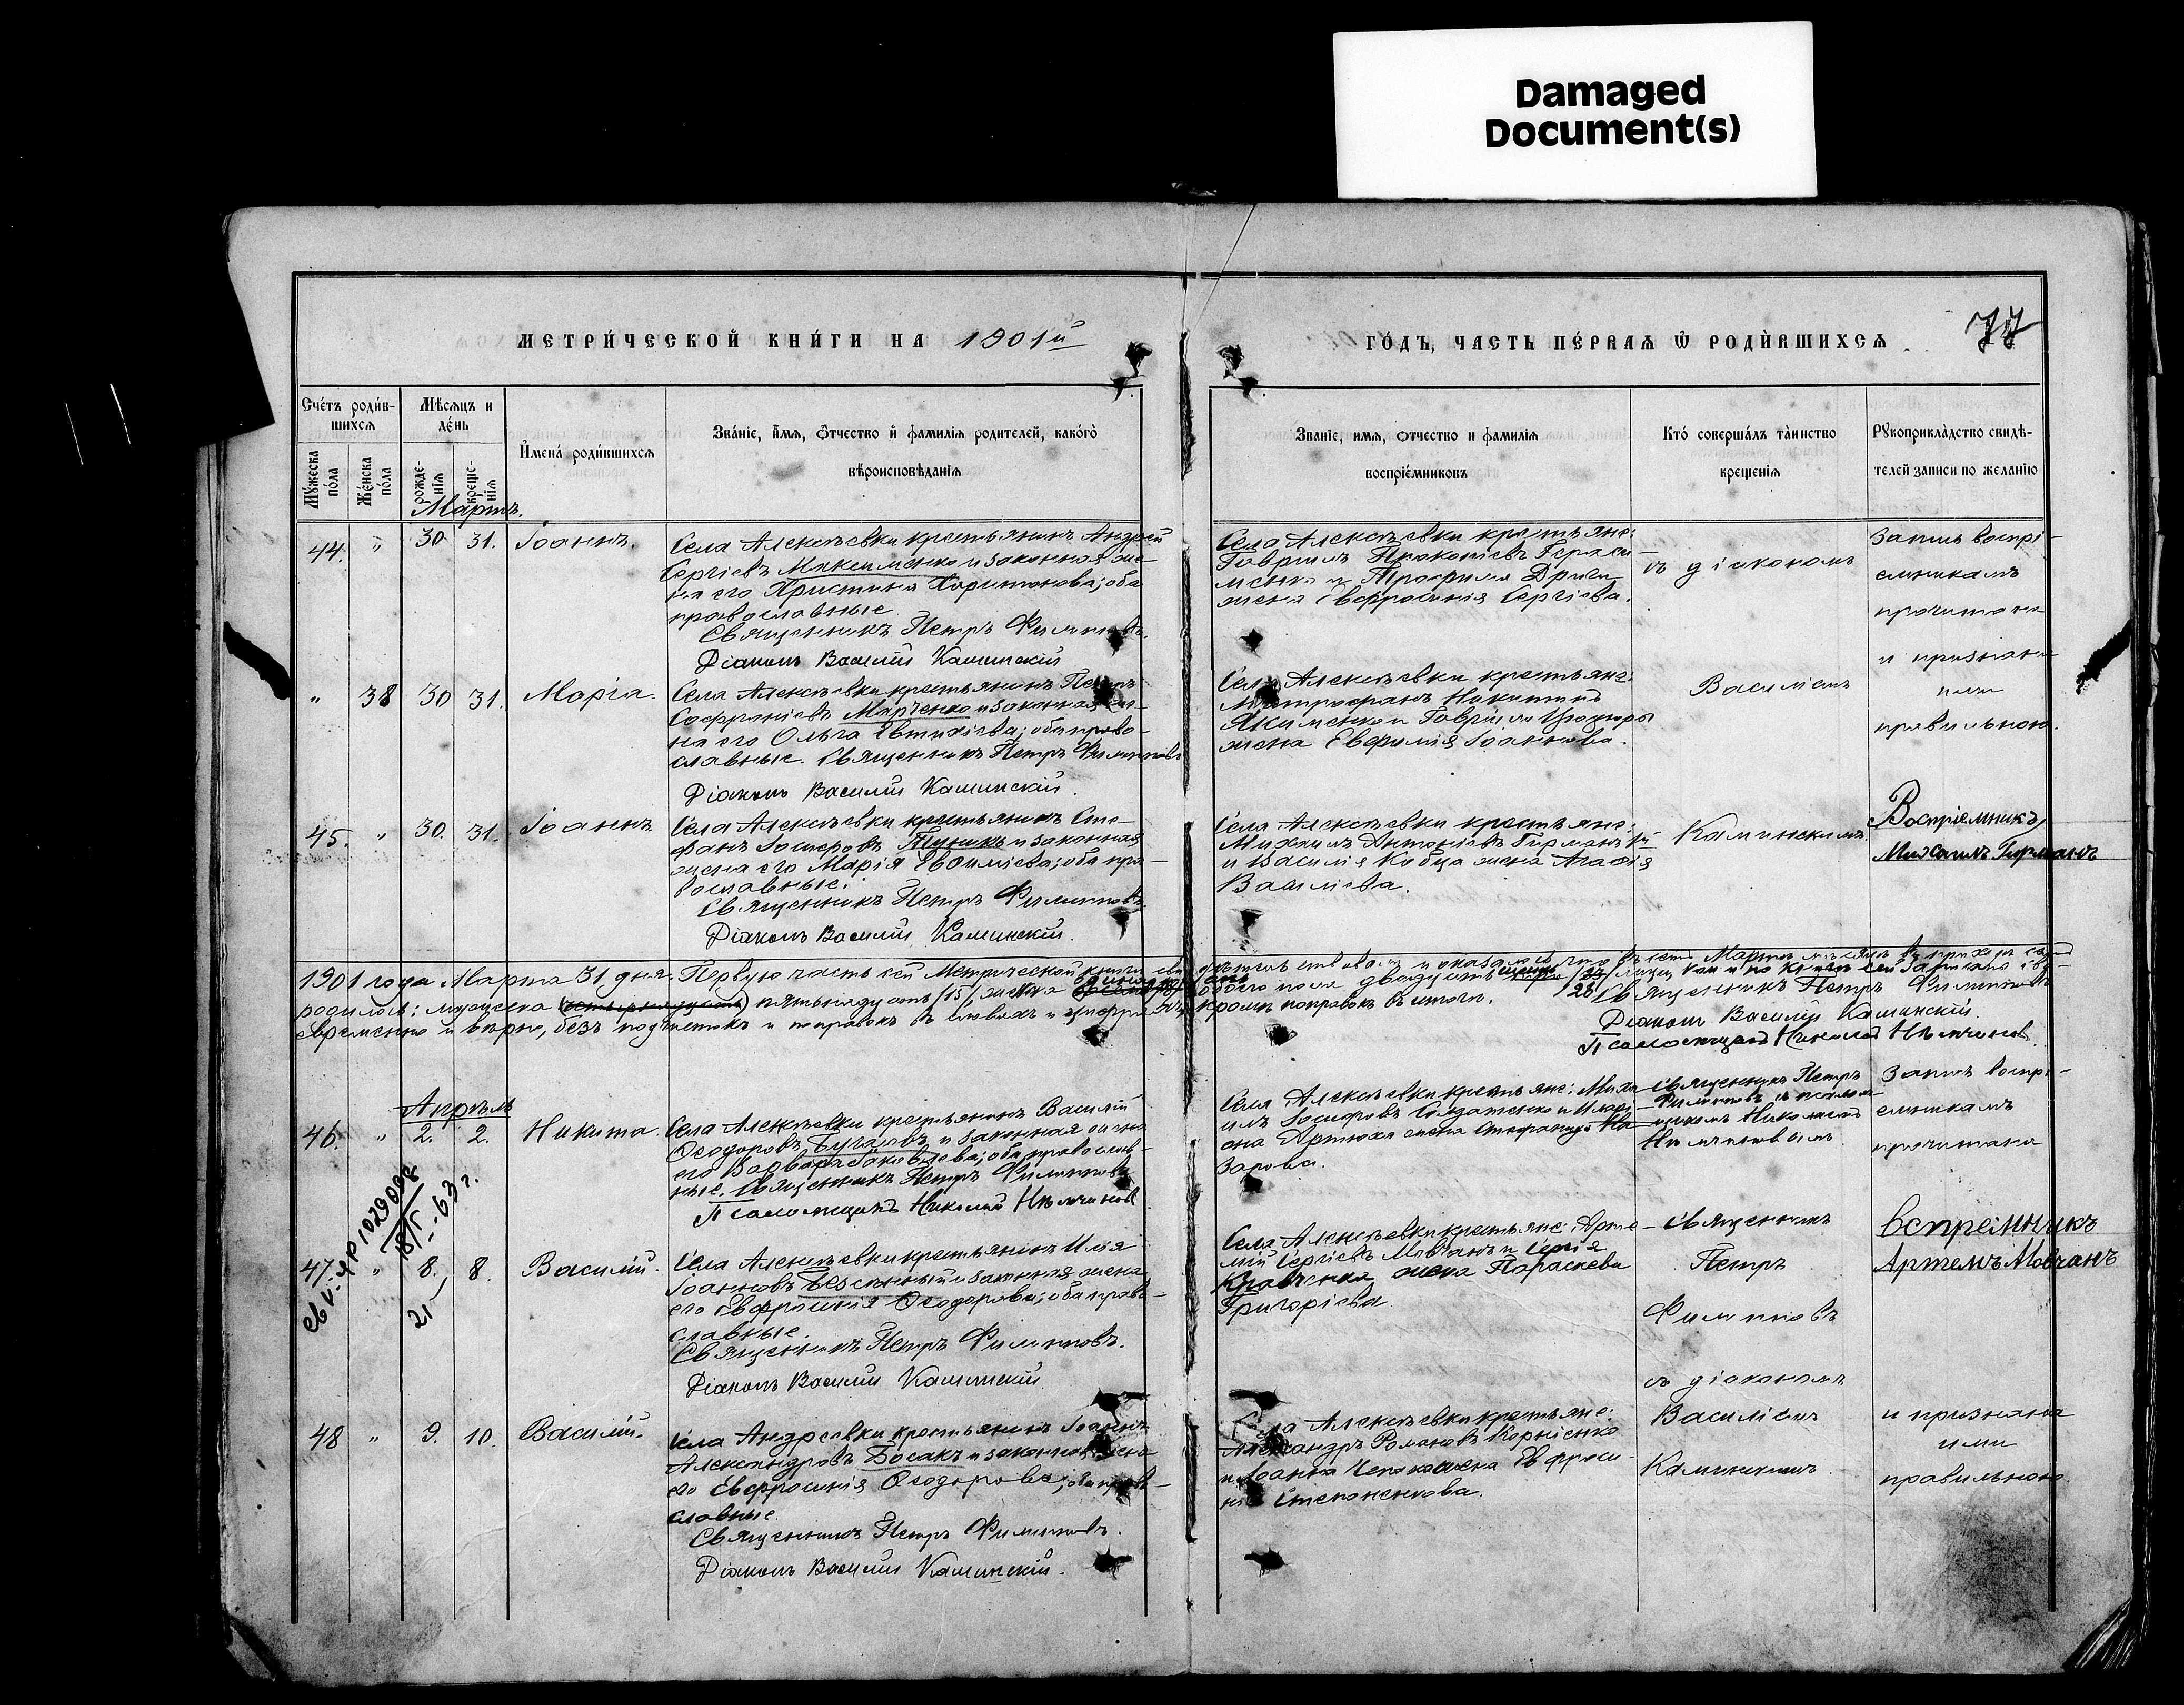 Damaged
Document(s)
МЕТРИ́ЧЕСКОЙ КНИ́ГИ НА 1901й
ГО́ДЪ, ЧАСТЬ ПЕ́РВАѦ Ѿ РОДИ́ВШИХСѦ
77
Сче́тъ роди́в-
шихсѧ
Мѣ́сѧцъ и
де́нь
Мꙋ́жеска
по́ла
Же́нска
по́ла
рожде-
нія
креще-
нія
И҆мена́ роди́вшихсѧ
Зва́ніе, и҆́мѧ, о҆́тчество и҆ фамилія родителей, како́гѡ
вѣроисповѣ́данія
Званіе, имя, отчество и фамилія
воспріе́мниковъ
Кто́ соверша́лъ та́инство
крещенія
Рꙋкоприкла́дство свидѣ-
телей записи по желанію
Мартъ.
44. " 30 31. Іоаннъ.
Села Алексѣевки крестьянинъ Андрей
Сергіевъ Максименко и законная же-
на его Христина Харитонова; оба
православные
Священникъ Петръ Филипповъ.
Діаконъ Василій Каминскій
Села Алексѣевки крестьяне:
Гавриилъ Прокопіевъ Гераси-
менко и Трофима
жена Евфросинія Сергіева.
съ діакономъ
Запись воспрі-
емникамъ
прочитана
и признана
ими
правильною.
" 38 30 31. Марія.
Села Алексѣевки крестьянинъ Петръ
Софроніевъ Марченко и законная же-
на его Ольга Евтихіева; оба право-
славные. Священникъ Петръ Филипповъ
Діаконъ Василій Каминскій.
Села Алексѣевки крестьяне:
Митрофанъ Никитинъ
Якименко и Гавріила
жена Евфимія Іоаннова.
Василіемъ
45. " 30. 31. Іоаннъ
Села Алексѣевки крестьянинъ Сте-
фанъ и законная
жена его Марія Евфиміева; оба пра-
вославные.
Священникъ Петръ Филипповъ.
Діаконъ Василій Каминскій.
Села Алексѣевки крестьяне:
Михаилъ Антоніевъ
и Василія Кобца жена Агафія
Василіева.
Каминскимъ.
Воспріемникъ
Михаилъ Гирманъ
1901 года Марта 31 дня. Первую часть сей Метрической книги свидѣтельствовали и оказалось, что въ семъ Мартѣ мѣсяцѣ въ приходѣ
родилось: мужеска пятьнадцать /15/, женска обоего пола двадцать /28/ лицъ, кои и по книгѣ сей записаны
временно и вѣрно, безъ подчистокъ и поправокъ въ словахъ и цифрахъ, кромѣ поправокъ въ итогѣ.
Священникъ Петръ Филипповъ
Діаконъ Василій Каминскій.
Псаломщикъ Николай Нѣмчиновъ.
Апрѣль
46. " 2. 2. Никита.
Села Алексѣевки крестьянинъ Василій
Ѳеодоровъ Бугаевъ и законная жена
его Варвара Іаковлева; оба православ-
ные. Священникъ Петръ Филипповъ
Псаломщикъ Николай Нѣмчиновъ
Села Алексѣевки крестьяне: Миха-
илъ Іосифовъ и Илари-
она жена Стефанида На-
зарова.
Священникъ Петръ
Филипповъ съ псалом-
щикомъ Николаемъ
Нѣмчиновымъ.
Запись воспрі-
емникамъ
прочитана
св V-ЯР 1029098
18/V-63 г.
47. " 8. 8. Василій.
21
Села Алексѣевки крестьянинъ Илія
Іоанновъ и законная жена
его Евфросинія Ѳеодорова; оба право-
славные.
Священникъ Петръ Филипповъ.
Діаконъ Василій Каминскій
Села Алексѣевки крестьяне: Арте-
мій Сергіевъ Мовчанъ и Сергія
Кравченка жена Параскева
Григоріева.
Священникъ
Петръ
Филипповъ
съ діакономъ
Василіемъ
Каминскимъ.
встреімникъ
Артемъ Мовчанъ
48 " 9. 10. Василій.
Села Андреевки крестьянинъ Іоаннъ
Александровъ Босакъ и законная жена
его Евфросинія Ѳеодорова; оба право-
славные.
Священникъ Петръ Филипповъ.
Діаконъ Василій Каминскій.
Села Алексѣевки крестьяне:
Александръ Романовъ Корніенко
и Іоанна жена Евфроси-
нія Степаненкова.
и признана
ими
правильною.